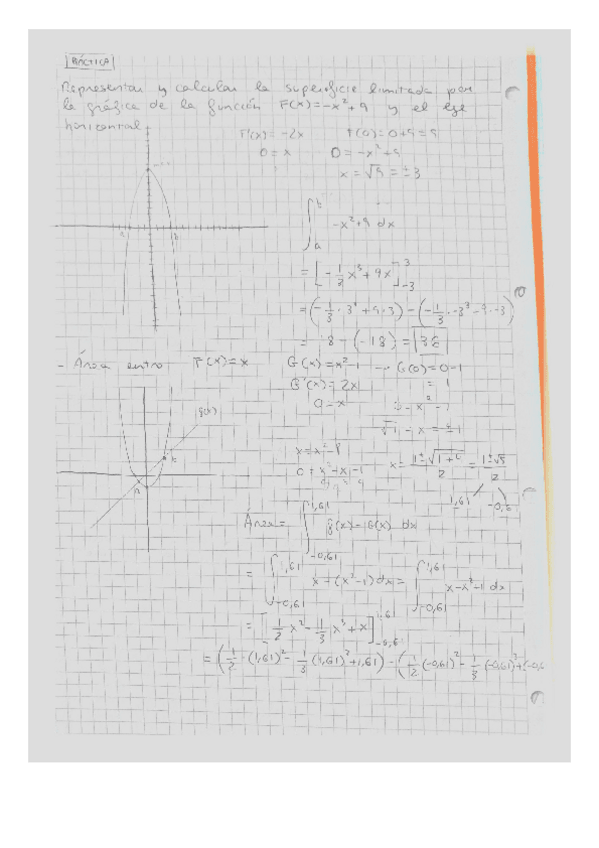 PRÁCTICA
Representar y calcular la superficie limitada por
la gráfica de la función F(x)=-x²+9 y el eje
horizontal
F'(x)=-2x F(0)=0+9=9
0=x 0=-x²+9
x=√9=±3
∫ b a -x²+9 dx
=[-1/2 x³+9x] 3 -3
=(-1/3·3³+9·3)-(-1/3·-3³-9·-3)
= 18-(-18)=
- Área entre F(x)=x G(x)=x²-1 G(0)=0-1
G'(x)=2x = 1
0=x
√1 = x = ±1
g(x)
a b
0 x=(1±√1+)/2=(1±√5)/2
1,61 -0,6
Área= ∫ 1,61 -0,61 f(x)-G(x) dx
= ∫ 1,61 -0,61 x-(x²-1)dx= ∫ 1,61 -0,61 x-x²-1 dx
=[1/2 x²-1/3 x³+x] 1,61 -0,6
=(1/2·(1,61)²-1/3(1,61)³+1,61)-(1/2(-0,61)²-1/3(-0,61)³+(-0,6